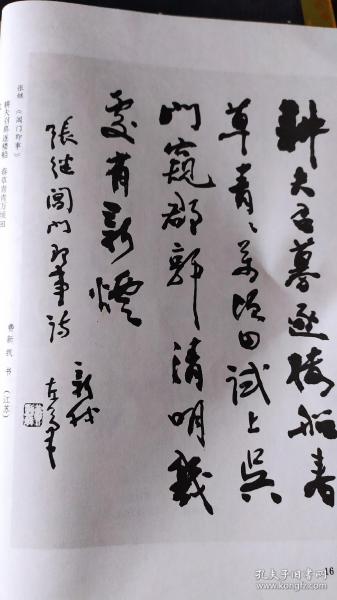 耕夫召募逐楼船春
草青青萬顷田试上吴
门窥郡郭清明幾
處有新煙
張继阊门即事诗
新我
左笔
张继《阊门即事》
耕夫召募逐楼船 春草青青万顷田
费新我 书 (江苏)
16
孔夫子旧书网